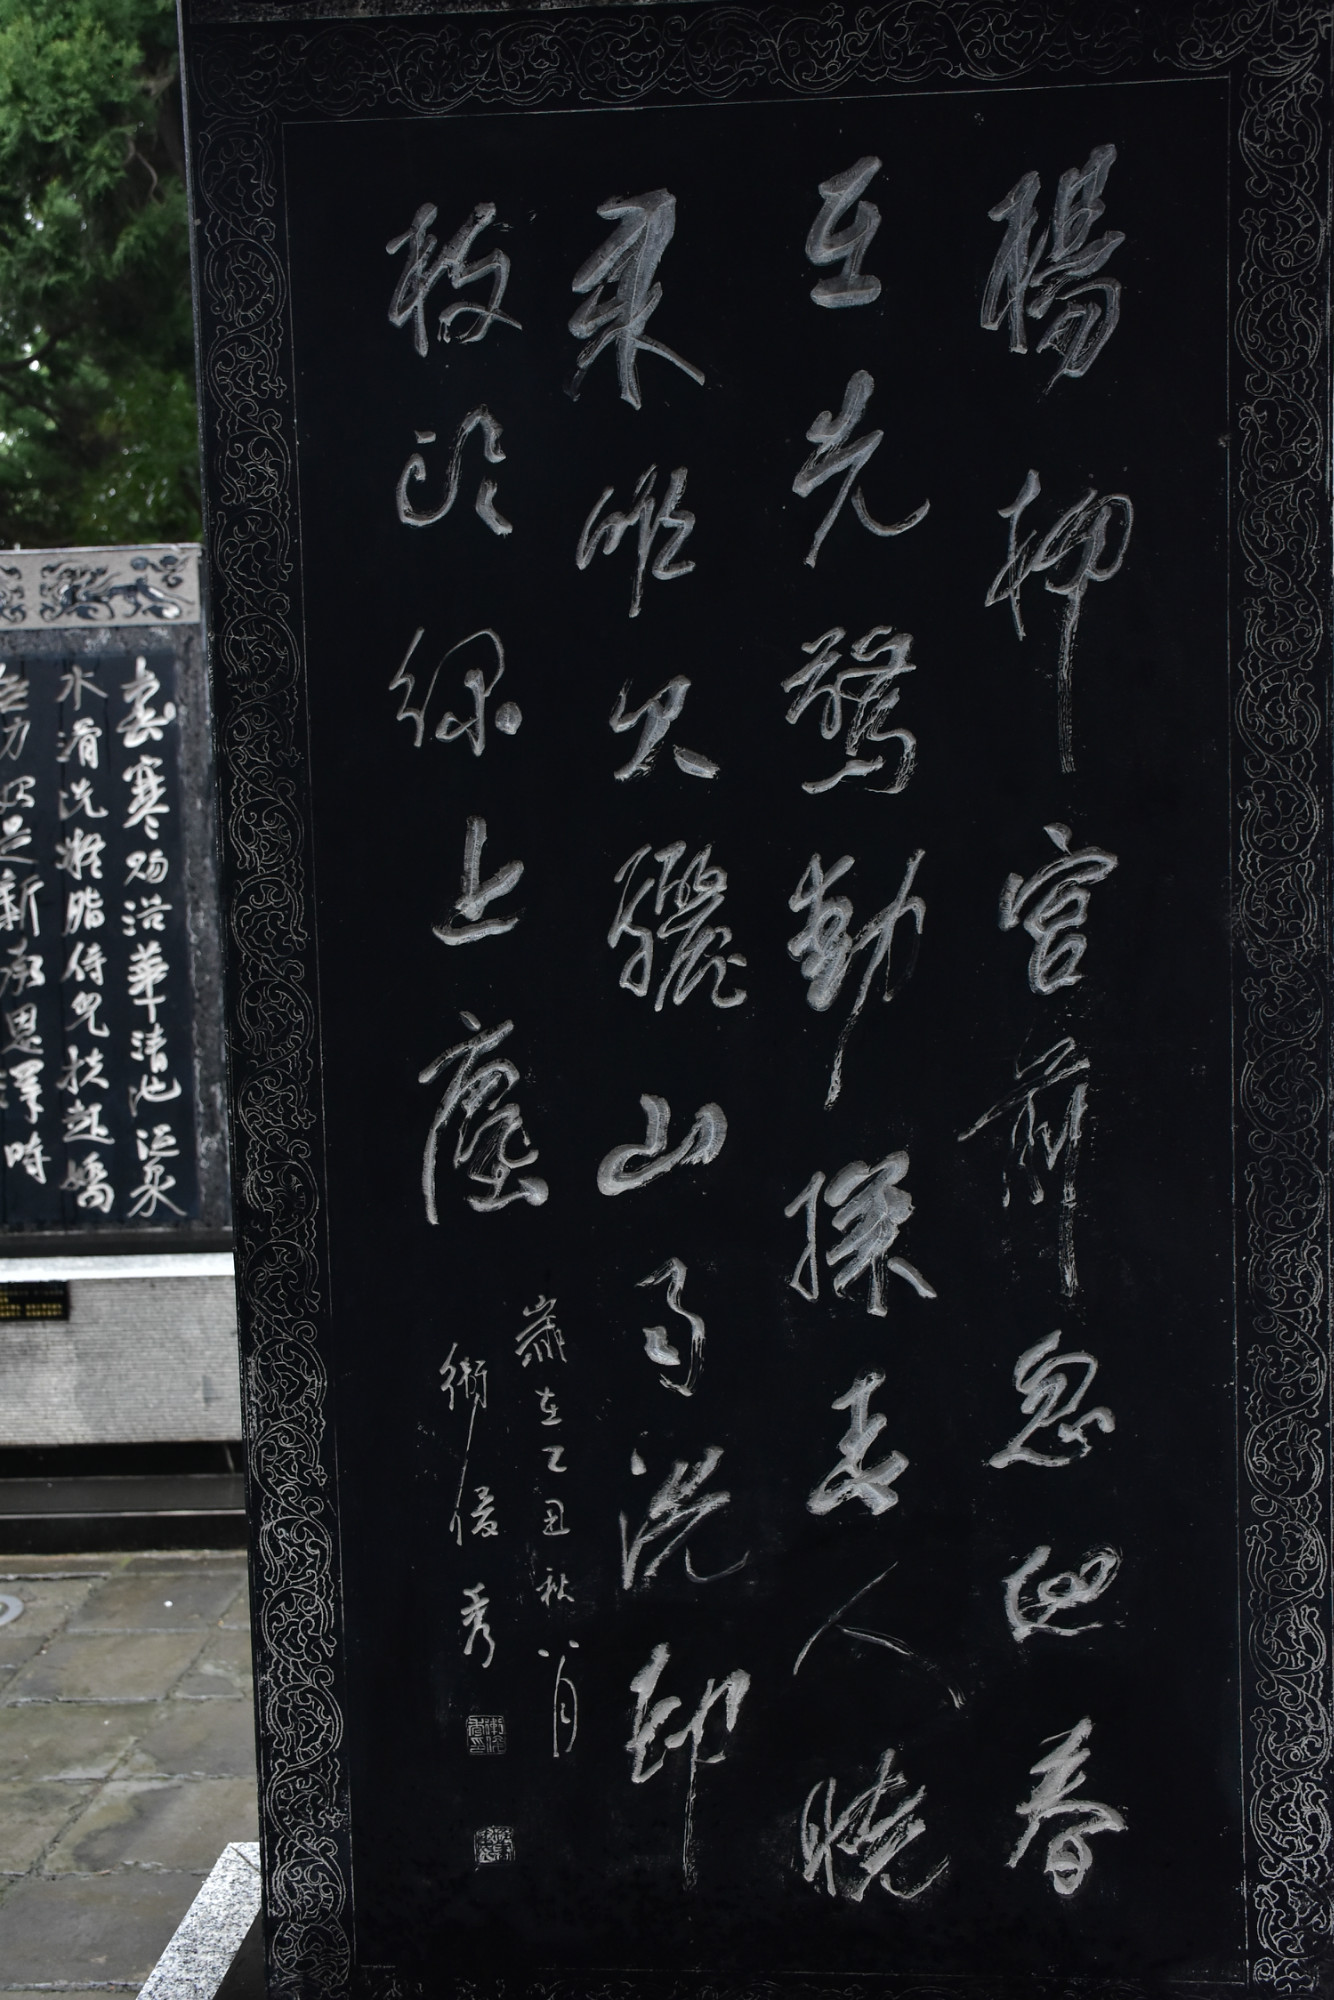 楊柳宮前忽地春
在先驚動探春人曉
來唯欠驪山雨洗卻
枝頭綠上塵
歲在乙丑秋八月
衛俊秀
春寒賜浴華清池温泉
水滑洗凝脂侍兒扶起嬌
無力始是新承恩澤時